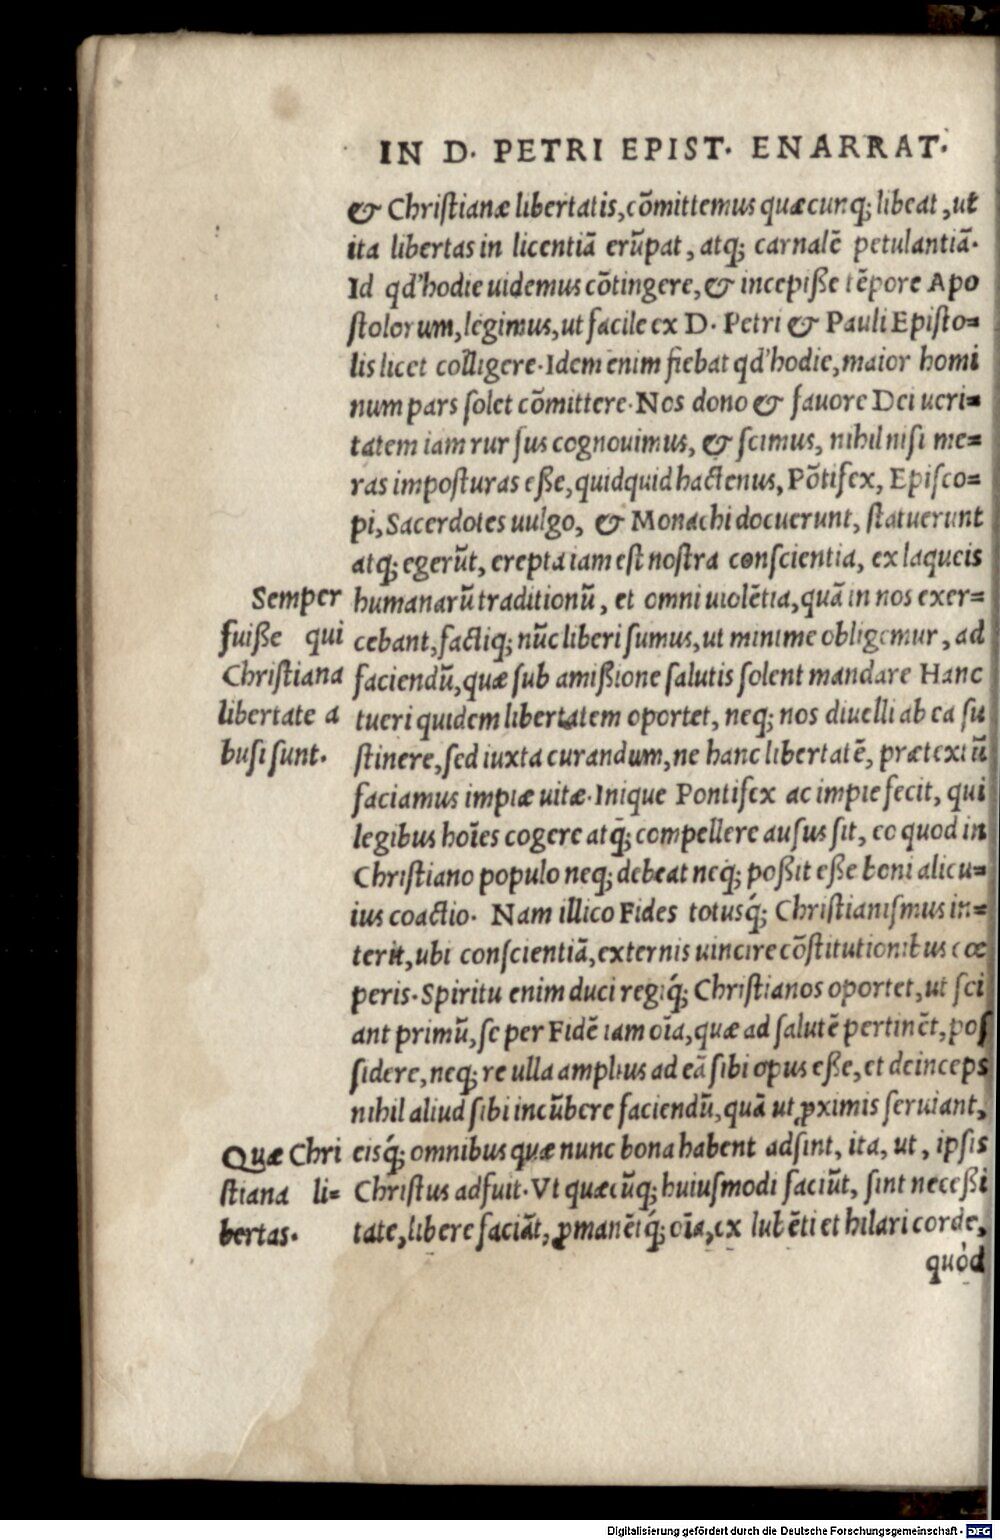 IN D. PETRI EPIST. ENARRAT.
& Christianæ libertatis, cõmittemus quæcunq; libeat, ut
ita libertas in licentiã erũpat, atq; carnalẽ petulantiã.
Id qd' hodie uidemus cõtingere, & incepiße tẽpore Apo
stolorum, legimus, ut facile ex D. Petri & Pauli Episto=
lis licet colligere. Idem enim fiebat qd' hodie, maior homi
num pars solet cõmittere. Nos dono & fauore Dei ueri=
tatem iam rursus cognouimus, & scimus, nihil nisi me=
ras imposturas eße, quidquid hactenus, Põtifex, Episco=
pi, Sacerdotes uulgo, & Monachi docuerunt, statuerunt
atq; egerũt, erepta iam est nostra conscientia, ex laqueis
Semper
fuiße qui
Christiana
libertate a
busi sunt.
humanarũ traditionũ, et omni uiolẽtia, quã in nos exer=
cebant, factiq; nũc liberi sumus, ut minime obligemur, ad
faciendũ, quæ sub amißione salutis solent mandare Hanc
tueri quidem libertatem oportet, neq; nos diuelli ab ea su
stinere, sed iuxta curandum, ne hanc libertatẽ, prætextũ
faciamus impiæ uitæ. Inique Pontifex ac impie fecit, qui
legibus hoĩes cogere atq̃; compellere ausus sit, eo quod in
Christiano populo neq; debeat neq; poßit eße boni alicu=
ius coactio. Nam illico Fides totusq́; Christianismus in=
terit, ubi conscientiã, externis uincire cõstitutionibus cœ
peris. Spiritu enim duci regiq́; Christianos oportet, ut sci
ant primũ, se per Fidẽ iam oĩa, quæ ad salutẽ pertinẽt, pos
sidere, neq; re ulla amplius ad eã sibi opus eße, et deinceps
nihil aliud sibi incũbere faciendũ, quã ut ꝓximis seruiant,
Quæ Chri
stiana li=
bertas.
eisq́; omnibus quæ nunc bona habent adsint, ita, ut, ipsis
Christus adfuit. Vt quæcũq; huiusmodi faciũt, sint neceßi
tate, libere faciãt, ꝓmanẽtq́; oĩa, ex lubẽti et hilari corde,
quòd
Digitalisierung gefördert durch die Deutsche Forschungsgemeinschaft - DFG